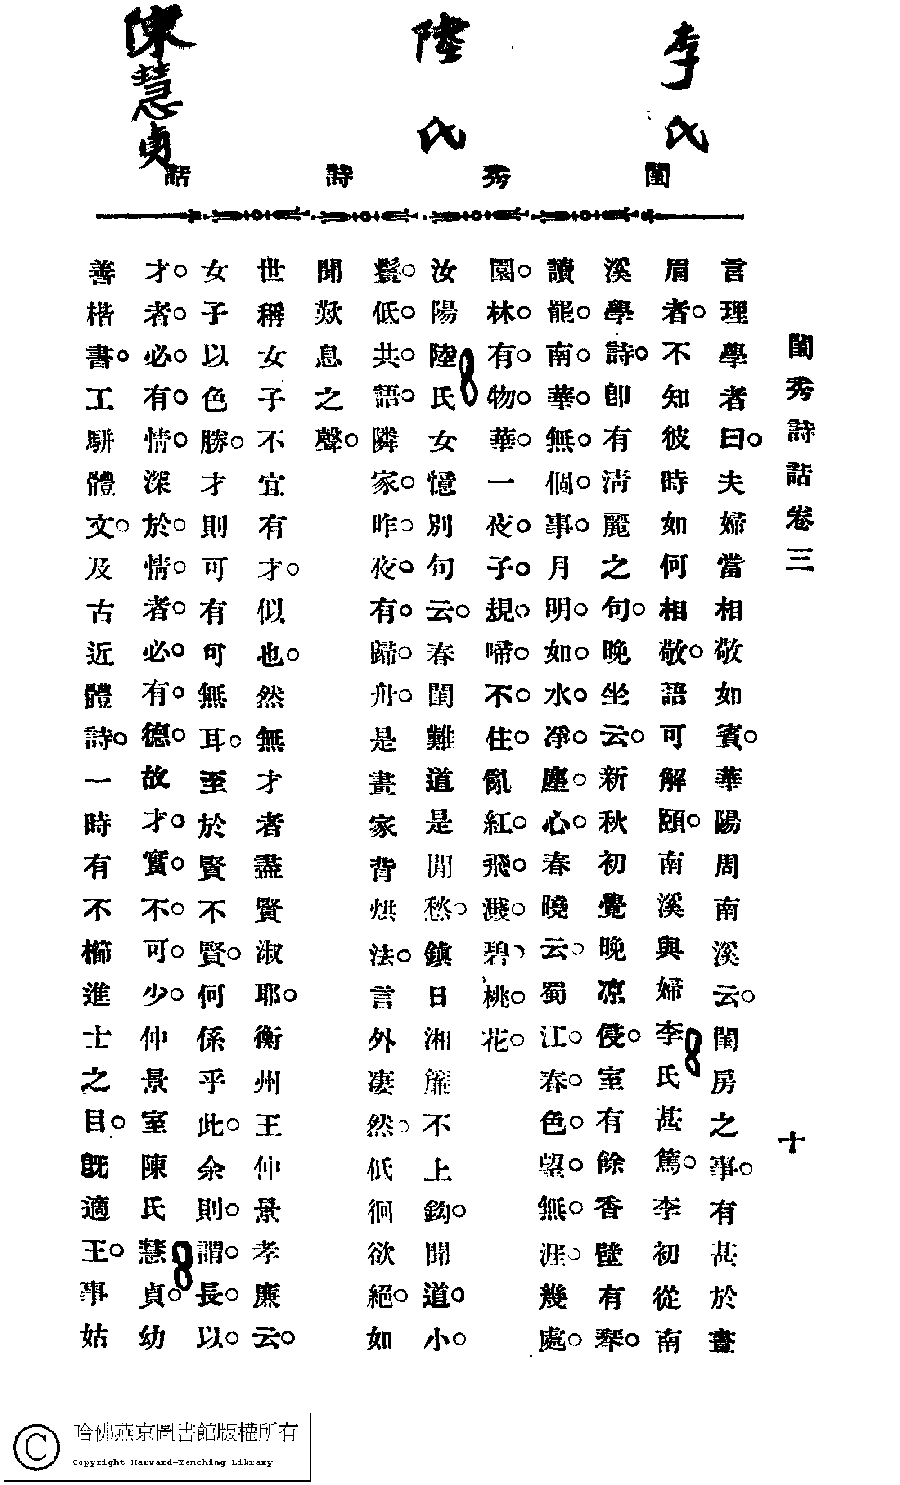 李氏
陸氏
陳慧貞
閨秀詩話
閨秀詩話卷三
十
言理學者曰。夫婦當相敬如賓。華陽周南溪云。閨房之事。有甚於畫
眉者。不知彼時如何相敬。語可解頤。南溪與婦李氏甚篤。李初從南
溪學詩。卽有淸麗之句。晚坐云。新秋初覺晚凉侵。室有餘香壁有琴。
讀罷南華。無個事。月明。如水。凈塵。心。春曉云。蜀江。春。色。望。無。涯。幾處。
園。林。有。物。華。一夜。子。規。啼。不。住。亂紅。飛。濺。碧、桃。花。
汝陽陸氏女憶別句云。春閨難道是閒愁。鎮日湘簾不上鈎。聞道。小。
鬟。低。共。語。隣家。昨。夜。有。歸。舟。是畫家背烘法。言外凄然。低徊欲絕。如
聞歎息之聲。
世稱女子不宜有才。似也。然無才者盡賢淑耶。衡州王仲景孝廉云。
女子以色勝。才則可有可無耳。至於賢不賢。何係乎此。余則。謂。長。以。
才。者。必。有。情。深於。情。者。必。有。德。故才。實。不。可。少。仲景室陳氏慧貞。幼
善楷書。工駢體文。及古近體詩。一時有不櫛進士之目。旣適王。事姑
哈佛燕京圖書館版權所有
Copyright Harvard-Yenching Library